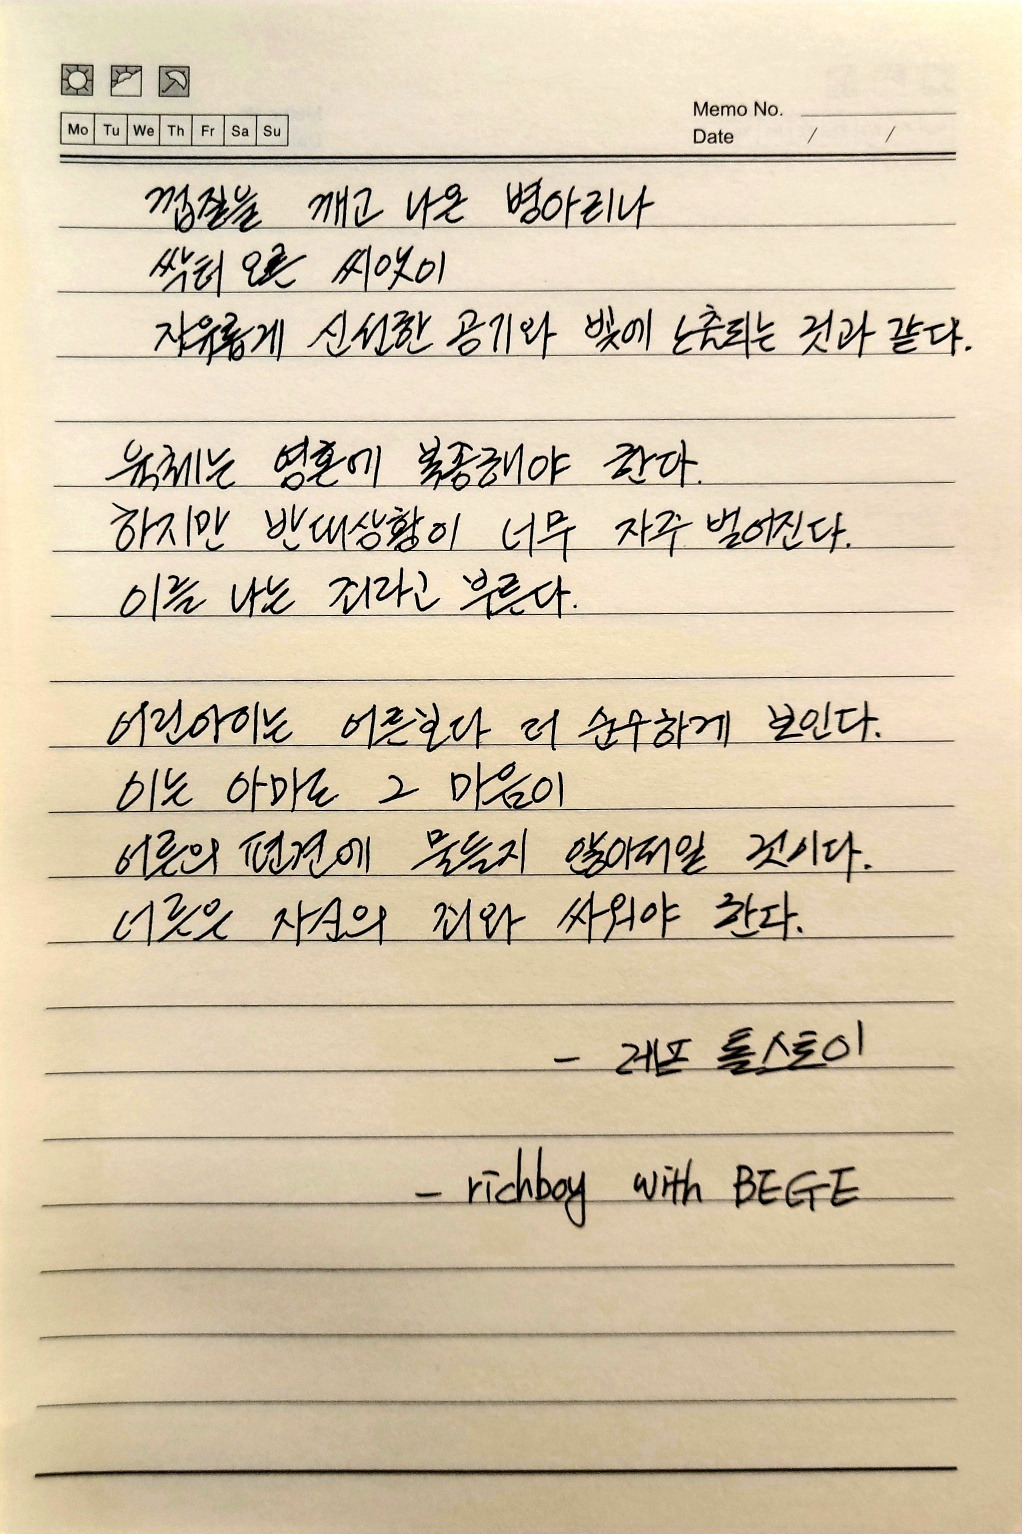 Mo Tu We Th Fr Sa Su
Memo No.
Date / /
껍질을 깨고 나온 병아리나
싹터 오른 씨앗이
자유롭게 신선한 공기와 빛에 노출되는 것과 같다.
육체는 영혼에 복종해야 한다.
하지만 반대상황이 너무 자주 벌어진다.
이를 나는 죄라고 부른다.
어린아이는 어른보다 더 순수하게 보인다.
이는 아마도 그 마음이
어른의 편견에 물들지 않아서일 것이다.
자신의 죄와 싸워야 한다.
- 레프 톨스토이
- richboy with BEGE